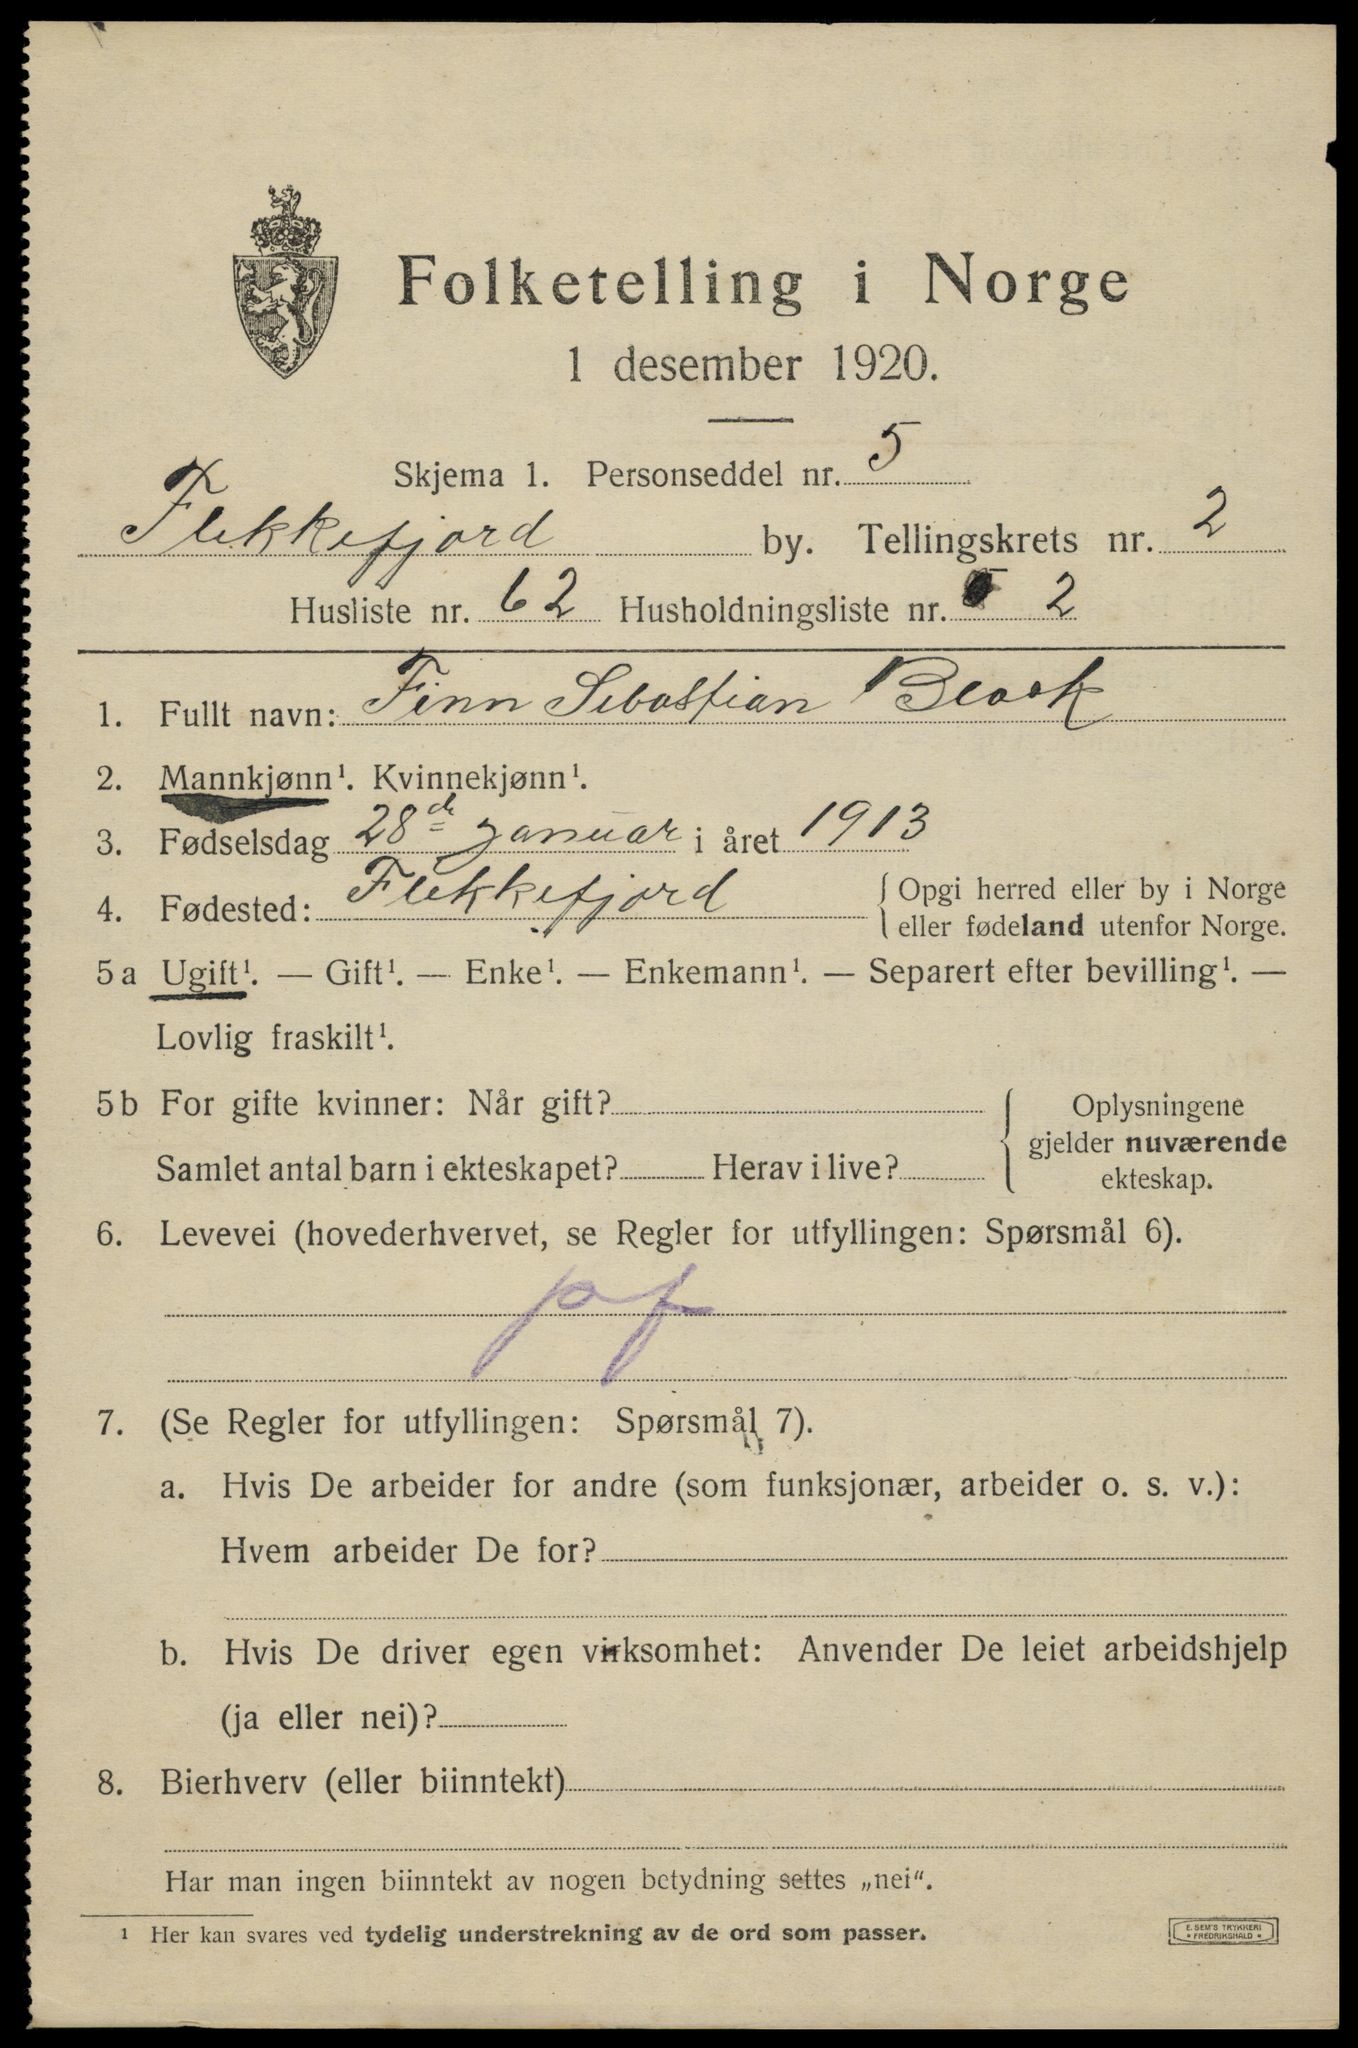 Folketelling i Norge
1 desember 1920.
Skjema 1. Personseddel nr. 5
Flekkefjord by. Tellingskrets nr. 2
Husliste nr. 62 Husholdningsliste nr. 2
1. Fullt navn: Finn Sebastian
2. Mannkjønn¹. Kvinnekjønn¹.
3. Fødselsdag 28de januar i året 1913
4. Fødested: Flekkefjord { Opgi herred eller by i Norge
eller fødeland utenfor Norge.
5 a Ugift¹. — Gift¹. — Enke¹. — Enkemann¹. — Separert efter bevilling¹. —
Lovlig fraskilt¹.
5 b For gifte kvinner: Når gift? { Oplysningene
gjelder nuværende
Samlet antal barn i ekteskapet? Herav i live? ekteskap.
6. Levevei (hovederhvervet, se Regler for utfyllingen: Spørsmål 6).
pf
7. (Se Regler for utfyllingen: Spørsmål 7).
a. Hvis De arbeider for andre (som funksjonær, arbeider o. s. v.):
Hvem arbeider De for?
b. Hvis De driver egen virksomhet: Anvender De leiet arbeidshjelp
(ja eller nei)?
8. Bierhverv (eller biinntekt)
Har man ingen biinntekt av nogen betydning settes „nei“.
¹ Her kan svares ved tydelig understrekning av de ord som passer.
E. SEM'S TRYKKERI
• FREDRIKSHALD •